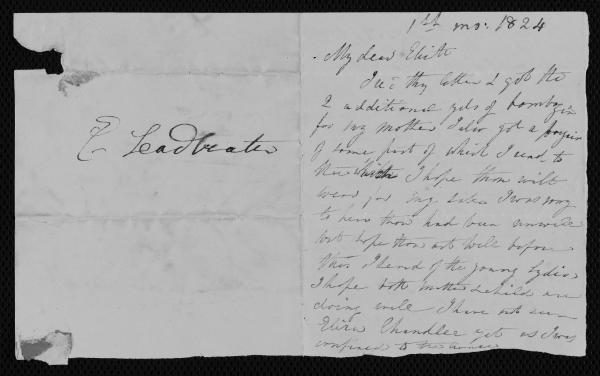 E Leadbeater
1st mo: 1824
My dear Eliz th
I rec d thy letter & got the
2 additional yds of bombazin
for my mother I also got a
of some part of which I send to
thee I hope thou wilt
wear for my sake I was sorry
to hear thou had been unwell
but hope thou art well before
this I heard of the young Lydia
I hope both mother & child are
doing well I have not seen
Eliza Chandlee yet as I was
confined to the house